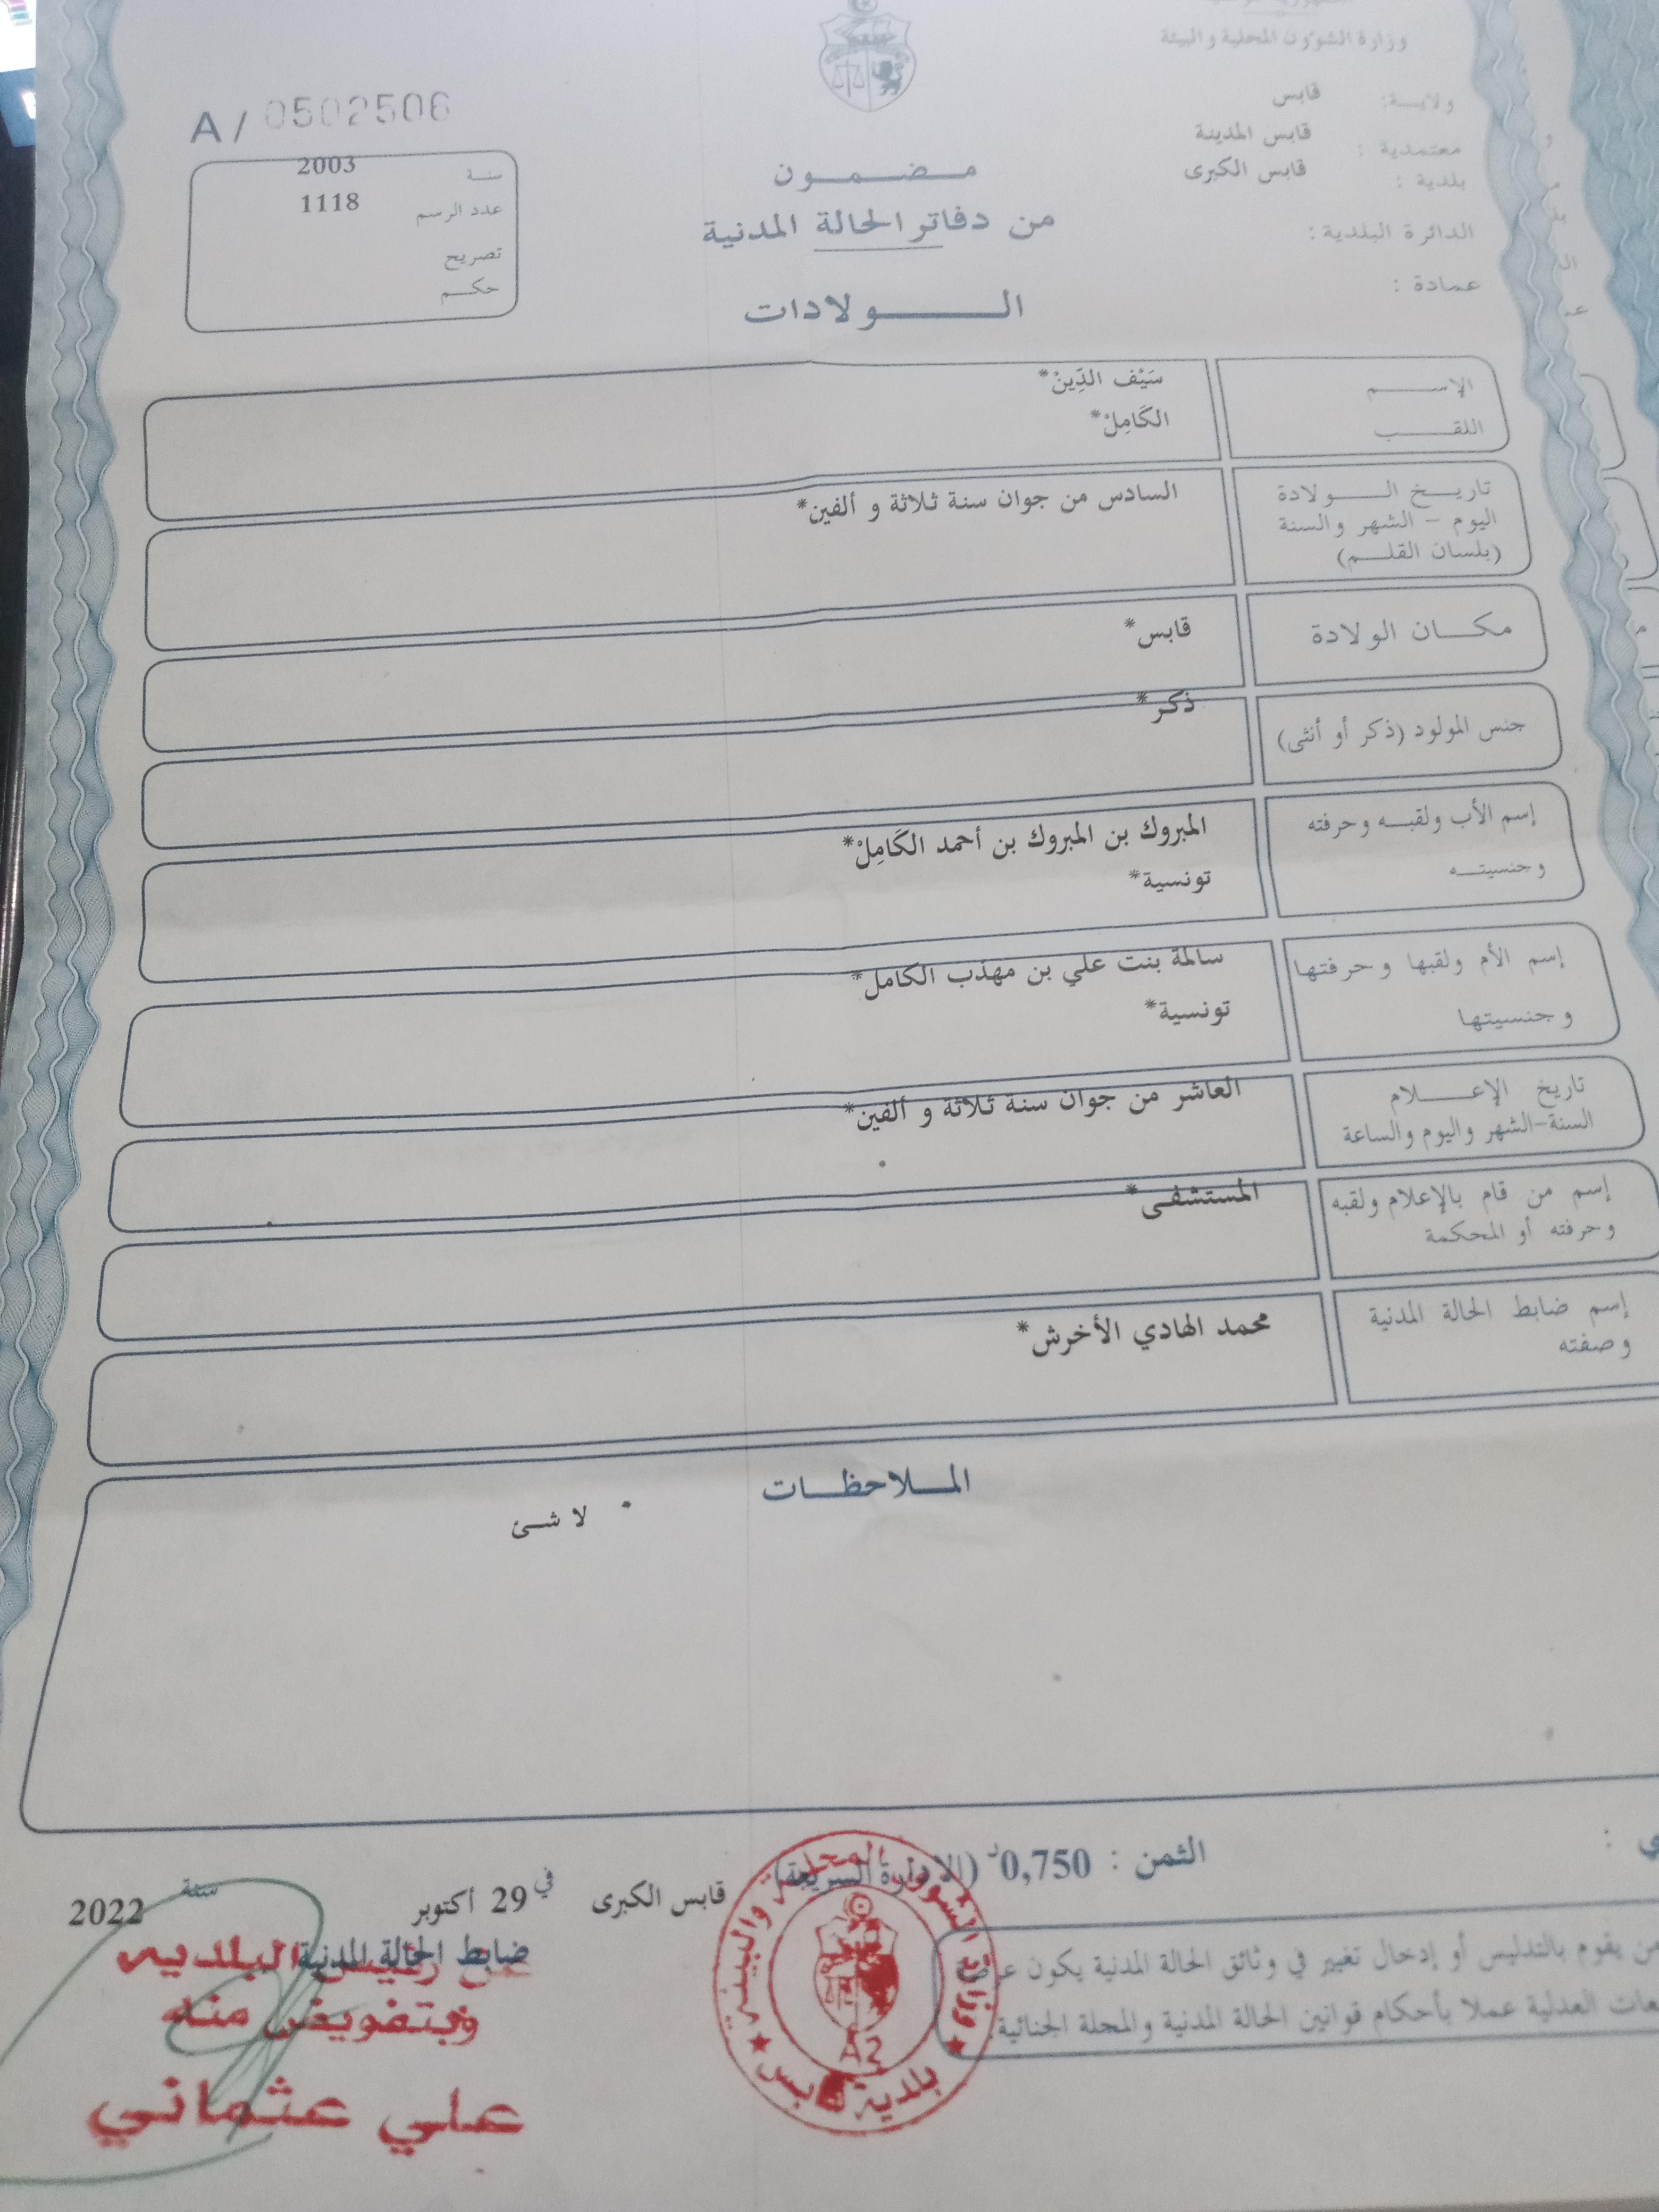 وزارة الشؤون المحلية والبيئة
ولاية: قابس
معتمدية : قابس المدينة
بلدية : قابس الكبرى
الدائرة البلدية :
عمادة :
A / 0502506
سنة 2003
عدد الرسم 1118
تصريح
حكم
مضمون
من دفاتر الحالة المدنية
الولادات
الإسم سَيْف الدِّينْ*
اللقب الكَامِلْ*
تاريخ الولادة السادس من جوان سنة ثلاثة و ألفين*
اليوم - الشهر والسنة
(بلسان القلم)
مكان الولادة قابس*
جنس المولود (ذكر أو أنثى) ذكر*
إسم الأب ولقبه وحرفته المبروك بن المبروك بن أحمد الكَامِلْ*
وجنسيته تونسية*
إسم الأم ولقبها وحرفتها سالمة بنت علي بن مهذب الكامل*
وجنسيتها تونسية*
تاريخ الإعلام العاشر من جوان سنة ثلاثة و ألفين*
السنة-الشهر واليوم والساعة
إسم من قام بالإعلام ولقبه المستشفى*
وحرفته أو المحكمة
إسم ضابط الحالة المدنية محمد الهادي الأخرش*
وصفته
الملاحظات
لا شئ
الثمن : 0,750د
قابس الكبرى في 29 أكتوبر سنة 2022
ضابط الحالة المدنية
رئيس البلدية
وبتفويض منه
علي عثماني
وزارة الشؤون المحلية والبيئة
A2
بلدية قابس
من يقوم بالتدليس أو إدخال تغيير في وثائق الحالة المدنية يكون عرضة
العدلية عملا بأحكام قوانين الحالة المدنية والمجلة الجنائية.